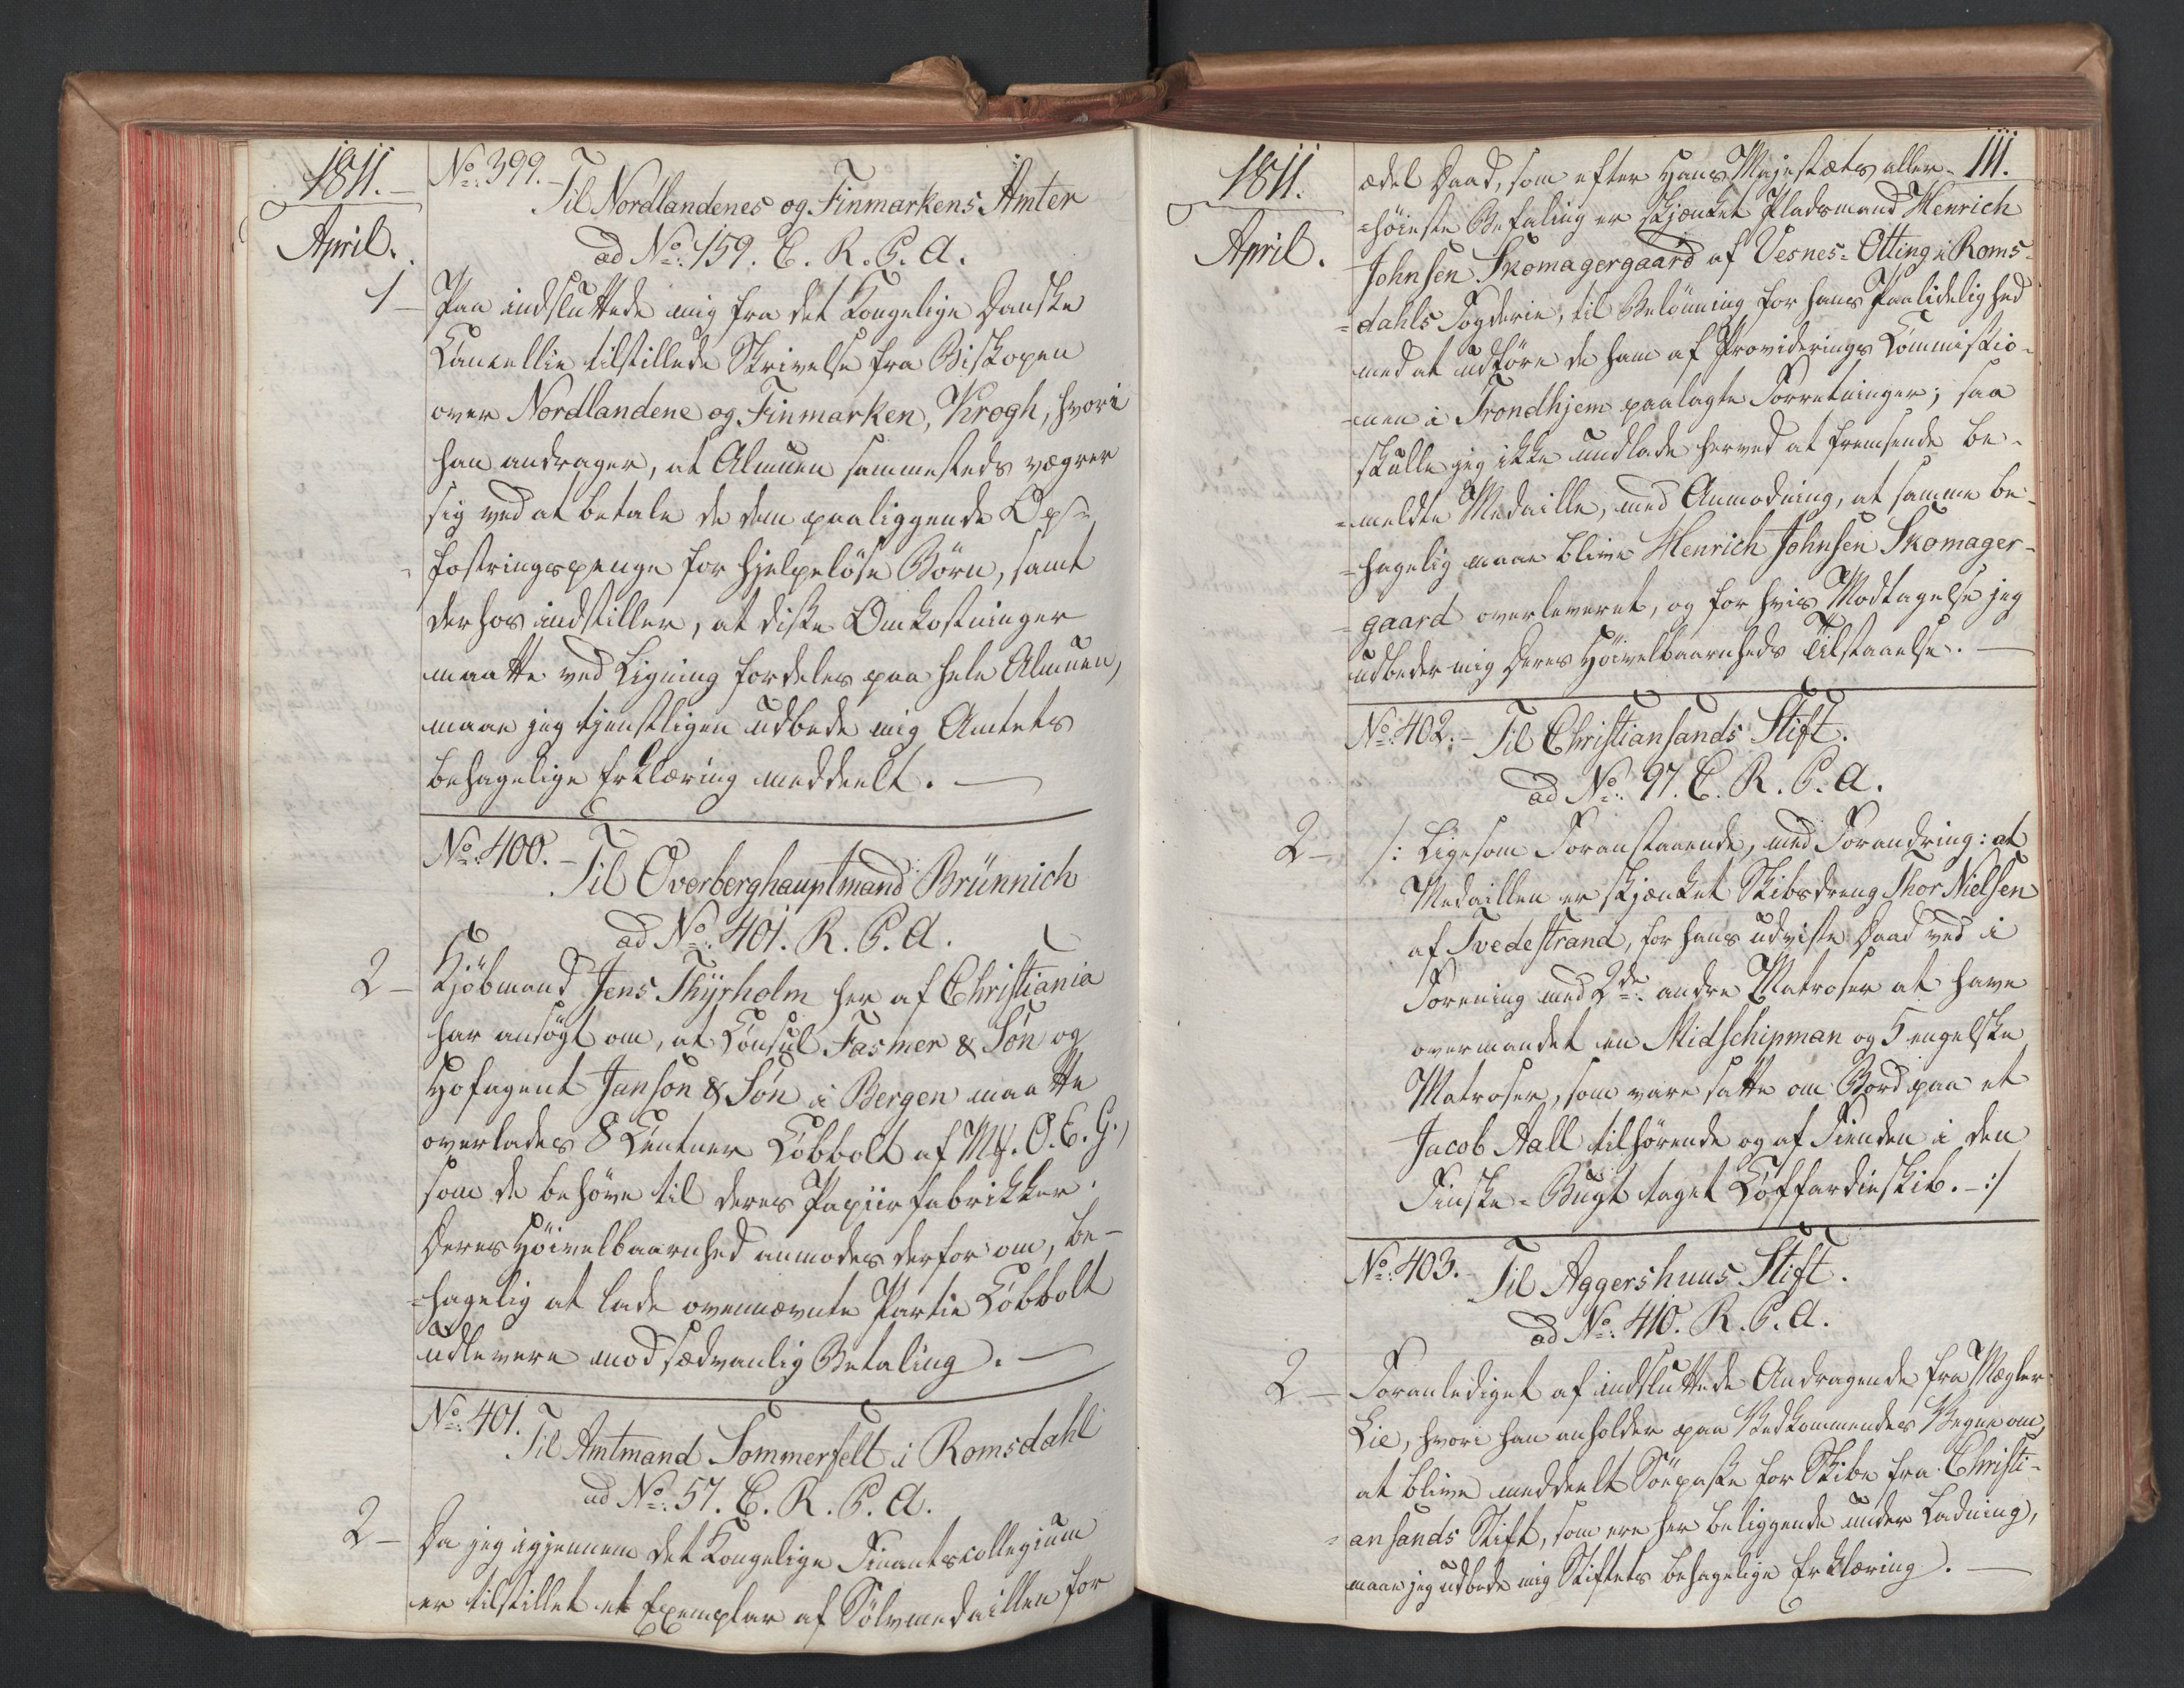 1811.
April.
No. 399.
Til Nordlandenes og Finmarkens Amter
ad No. 159. C. R. P. A.
1 –
Paa indsluttede mig fra det Kongelige Danske
Cancellie tilstillede Skrivelse fra Biskopen
over Nordlandene og Finmarken, Krogh, hvori
han andrager, at Almuen sammesteds vægrer
sig ved at betale de dem paaliggende Op-
-fostringspenge for hjelpeløse Börn, samt
derhos indstiller, at disse Omkostninger
maatte ved Ligning fordeles paa hele Almuen,
maae jeg tjenstligen udbede mig Amtets
behagelige Erklæring meddeelt. —
No. 400. –
Til Overberghauptmand Brünnich
ad No. 401. R. P. A.
2 –
Kjöbmand Jens Thyrholm her af Christiania
har ansögt om, at Consul Fasmer & Sön og
Hofagent Janson & Sön i Bergen maatte
overlades 8 Centner Cobbolt af M. O. E. G.,
som de behöve til deres Papiirfabrikker.
Deres Höivelbaarnhed anmodes derfor om, be-
-hagelig at lade ovennævnte Partie Cobbolt
udlevere mod sædvanlig Betaling. —
No. 401.
Til Amtmand Sommerfelt i Romsdahl
ad No. 57. C. R. P. A.
2 –
Da jeg igjennem det Kongelige Finantscollegium
er tilstillet et Exemplar af Sölvmedaillen for
1811.
111.
April.
ædel Daad, som efter Hans Majestæts aller-
-höieste Befaling er skjænket Pladsmand Henrich
Johnsen Skomagergaard af Vesnes-Otting i Roms-
-dahls Fogderie, til Belönning for hans Paalidelighed
med at udföre de ham af Providerings Commissio-
-nen i Trondhjem paalagte Forretninger; saa
skulle jeg ikke undlade herved at fremsende be-
-meldte Medaille, med Anmodning, at samme be-
-hagelig maae blive Henrich Johnsen Skomager-
-gaard overleveret, og for hvis Modtagelse jeg
udbeder mig Deres Höivelbaarnheds Tilstaaelse. —
No. 402. – Til Christiansands Stift.
ad No. 97. C. R. P. A.
2 –
/: Ligesom Foranstaaende, med Forandring: at
Medaillen er skjænket Skibsdreng Thor Nielsen
af Tvedestrand, for hans udviste Daad ved i
Forening med 2de andre Matroser at have
overmandet en Midschipman og 5 engelske
Matroser, som vare satte om Bord paa et
Jacob Aall tilhörende og af Fienden i den
Finske-Bugt taget Coffardieskib. – :/
No. 403. –
Til Aggershuus Stift.
ad No. 410. R. P. A.
2 –
Foranlediget af indsluttede Andragende fra Mægler
Lie, hvori han anholder paa Vedkommendes Vegne om,
at blive meddeelt Söepasse for Skibe fra Christi-
-ansands Stift, som ere her beliggende under Ladning,
maae jeg udbede mig Stiftets behagelige Erklæring. —